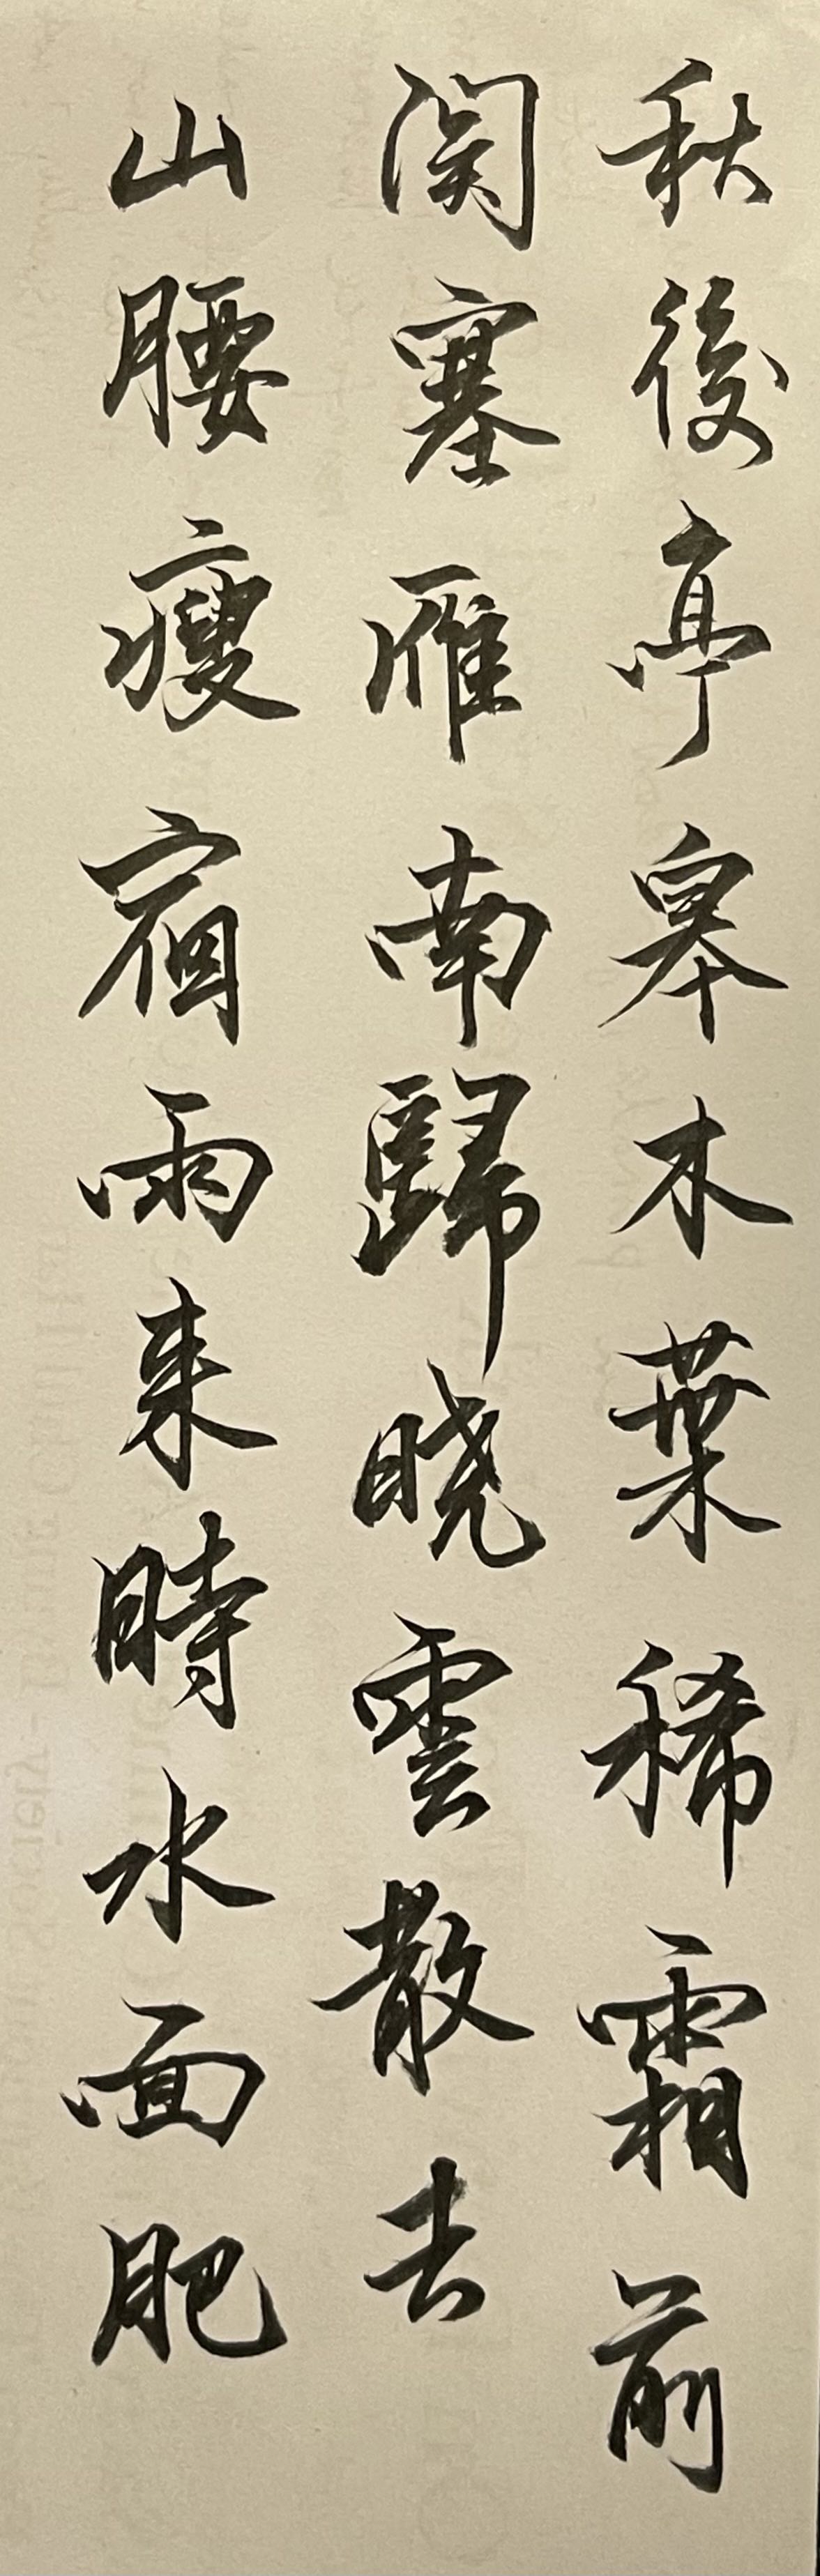 秋後亭皋木葉稀霜前
関塞雁南歸晓雲散去
山腰瘦宿雨来時水面肥